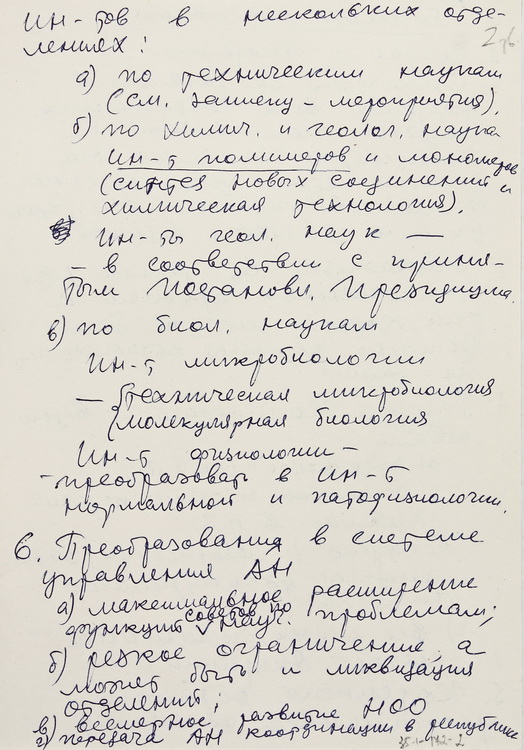 ин-тов в нескольких отде-
лениях:
2об
а) по техническим наукам
(см. записку – мероприятия),
б) по химич. и геолог. наука
Ин-т полимеров и мономеров
(синтез новых соединений и
химическая технология),
Ин-ты геол. наук —
– в соответствии с приня-
тым Постановл. Президиума.
в) по биол. наукам
Ин-т микробиологии
— {техническая микробиология
{молекулярная биология
Ин-т физиологии –
– преобразовать в Ин-т
нормальной и патофизиологии.
6. Преобразования в системе
управления АН
а) максимальное расширение
функций советов по науч. проблемам;
б) резкое ограничение, а
может быть и ликвидация
отделений;
в) всемерное развитие НОО
г) передача АН координации в республике